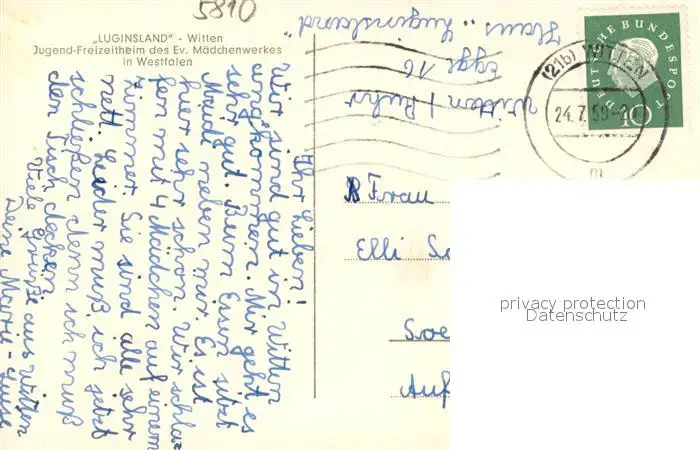 5810
„LUGINSLAND" - Witten
Jugend-Freizeitheim des Ev. Mädchenwerkes
in Westfalen
Ihr Lieben!
Wir sind gut in Witten
angekommen. Mir geht es
sehr gut. Beim Essen sitzt
Maudi neben mir. Es ist
hier sehr schön. Wir schla-
fen mit 4 Mädchen auf einem
Zimmer. Sie sind alle sehr
nett. Leider muß ich jetzt
schließen denn ich muß
den Tisch decken.
Viele Grüße aus Witten
Deine Marie-Luise
Haus „Luginsland"
Egge 16
Witten/Ruhr
DEUTSCHE BUNDESPOST
10
(21b) WITTEN
24.7.59
m
Frau
Elli
Soe
Auf
privacy protection
Datenschutz